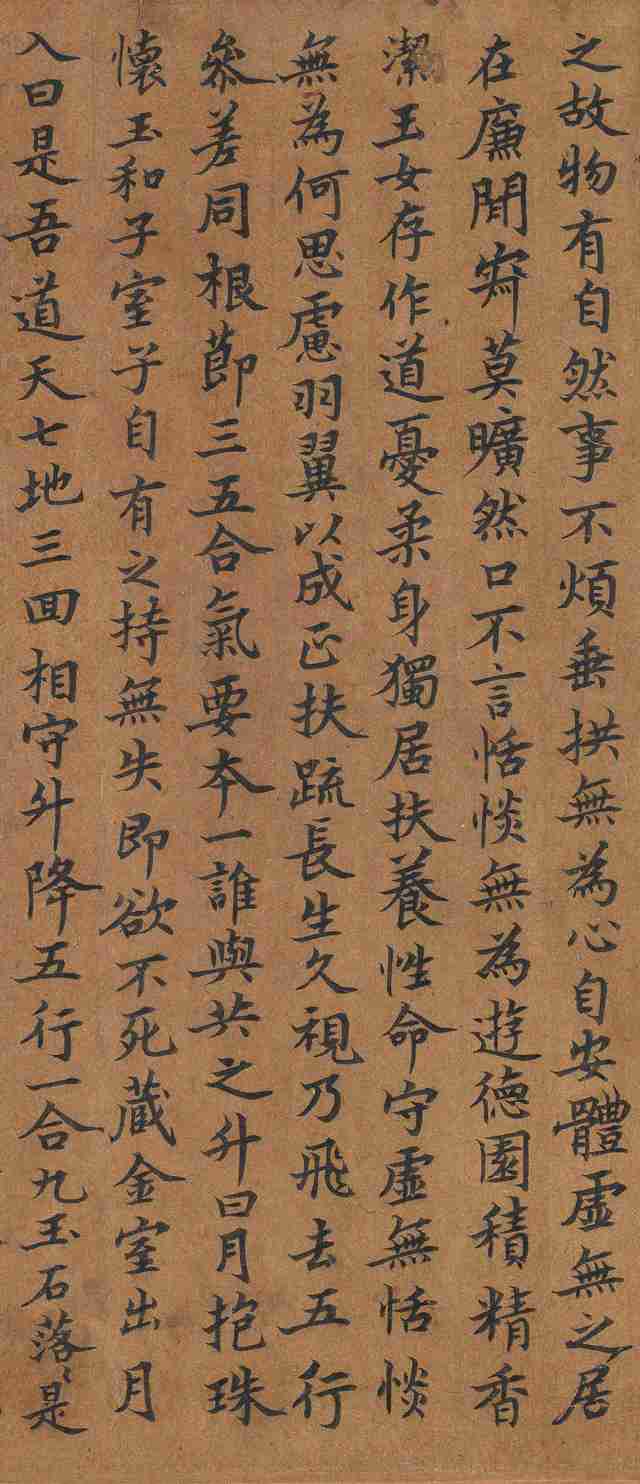 之故物有自然事不煩垂拱無為心自安體虛無之居
在廉閒寂莫曠然口不言恬惔無為遊德園積精香
潔玉女存作道憂柔身獨居扶養性命守虛無恬惔
無為何思慮羽翼以成正扶踈長生久視乃飛去五行
叅差同根莭三五合氣要夲一誰與共之升日月抱珠
懷玉和子室子自有之持無失即欲不死藏金室出月
入日是吾道天七地三回相守升降五行一合九玉石落〻是